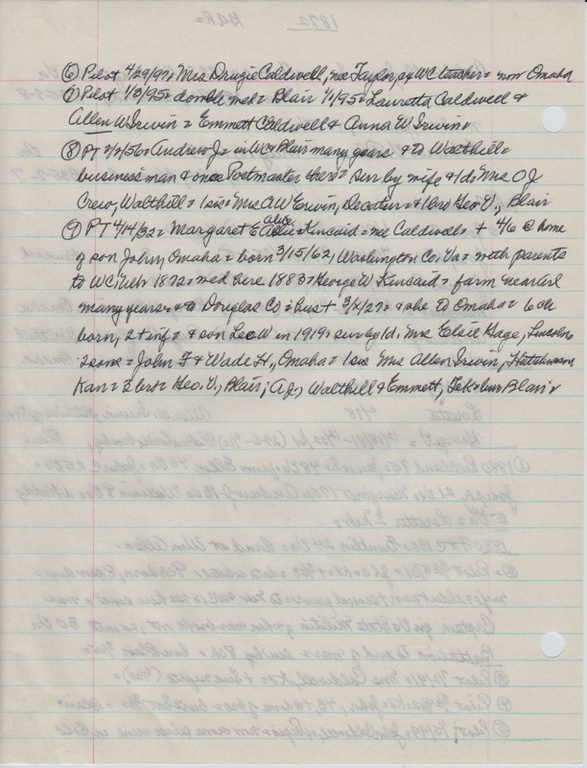 ⑥ Pilot 4/29/97= Mrs Druzie Caldwell, nee Taylor, ex WC teacher= now Omaha
⑦ Pilot 1/3/95= double med= Blair 1/1/95= Lauretta Caldwell &
Allen W Irwin = Emmett Caldwell & Anna W Irwin.
⑧ PT 56= Andrew J= in WC & Blair many years & to Walthill=
business man & once Postmaster there= sur by wife & 1d= Mrs O J
Crew, Walthill= 1sis= Mrs A W Erwin, Decatur= & 1bro Geo V., Blair
⑨ PT 4/14/32= Margaret E alice Kincaid= nee Caldwell= + 4/6 @ home
of son John, Omaha= born 3/15/62, Washington Co. Va= with parents
to WC Neb 1872= med here 1883= George W Kincaid= farm near
many years= & to Douglas Co= hus + 27= & she to Omaha= 6 ch
born, 2+inf= & son Leo W in 1919= sur by 1d. Mrs Elsie Gage, Lincoln=
2sons= John F & Wade H., Omaha= 1sis Mrs Allen Irwin, Hutchinson
Kan= 3 bro= Geo. V., Blair; A J, Walthill & Emmett, Blair=